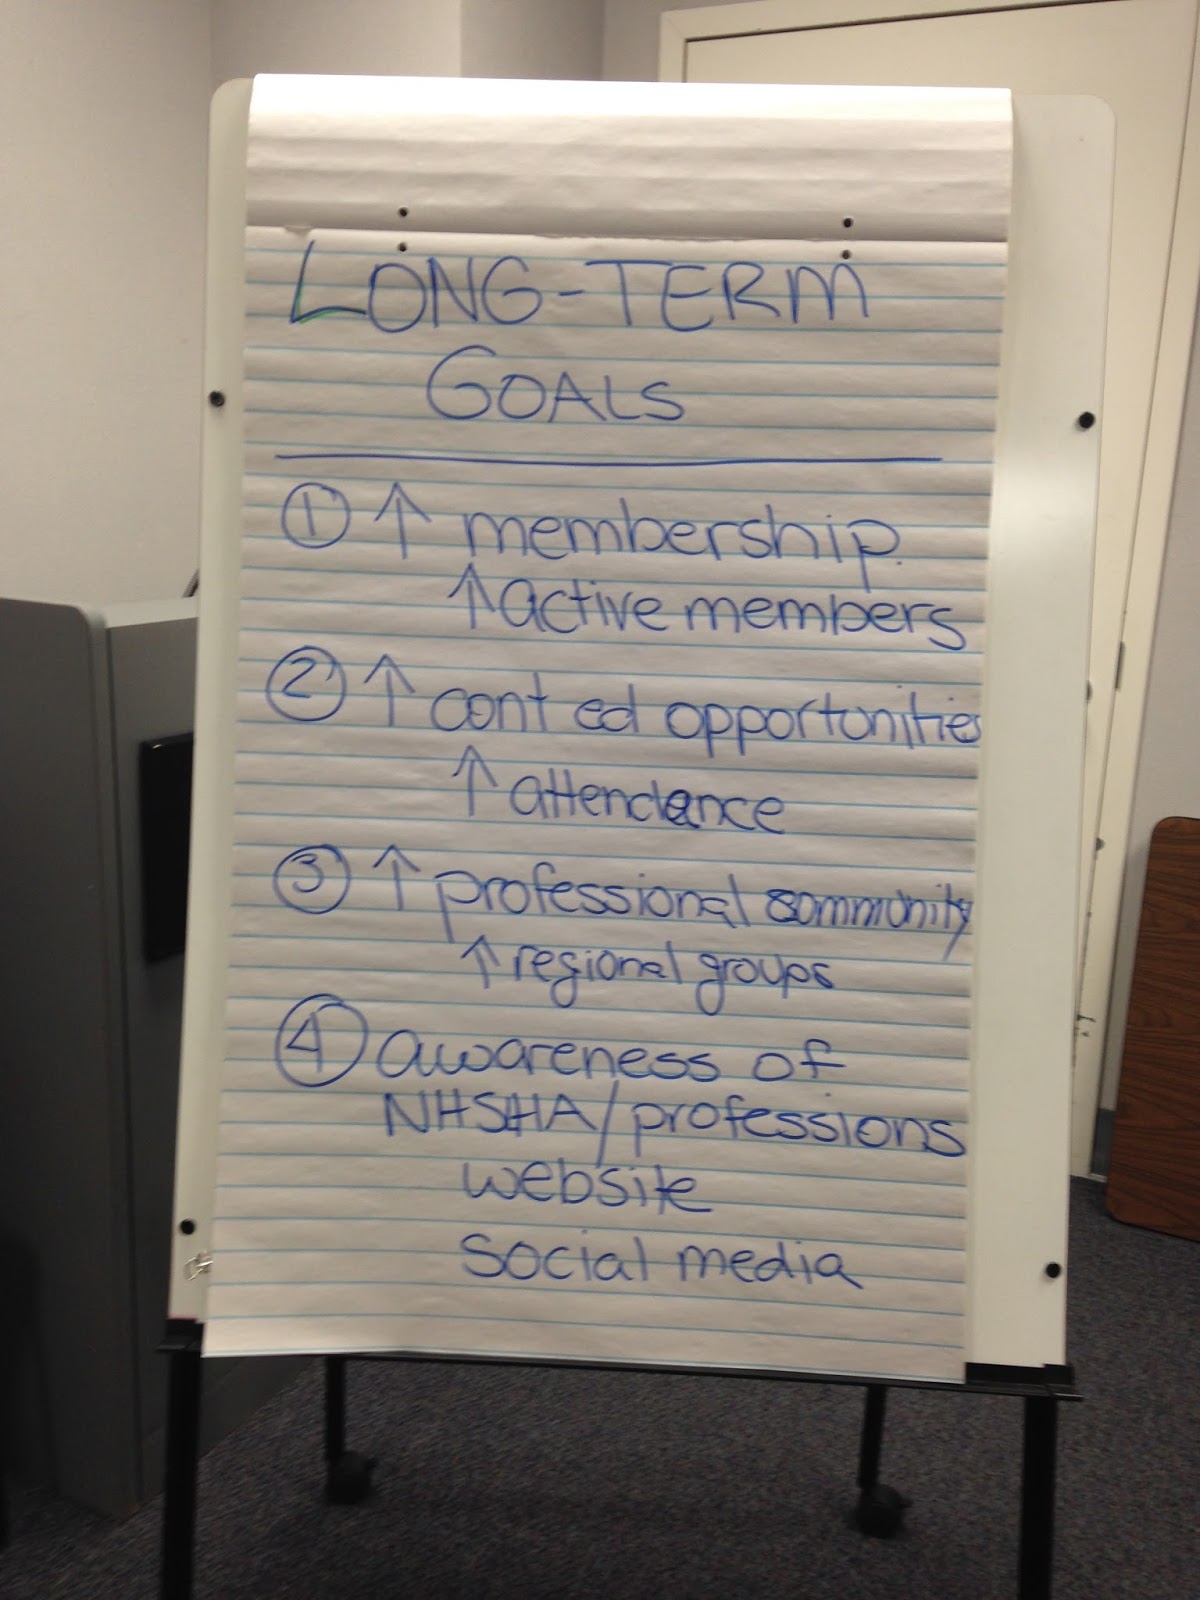 LONG-TERM
GOALS
① ↑ membership
↑ active members
② ↑ cont ed opportunities
↑ attendance
③ ↑ professional community
↑ regional groups
④ awareness of
NHSHA/professions
website
social media